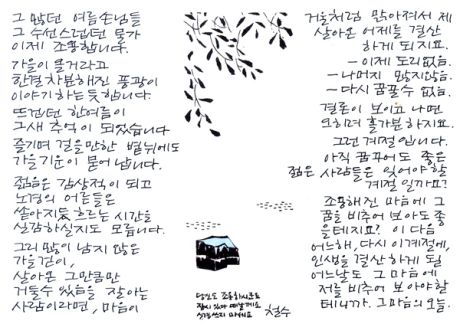 그 많던 여름손님들
그 수선스럽던 물가
이제 조용합니다.
가을이 물거라고
한결차분해진 풍광이
이야기하는듯합니다.
뜨겁던 한여름이
그새 추억이 되었습니다
즐기며 걸을만한 볕뉘에도
가을기운이 묻어 납니다.
젊음은 감상적이 되고
노경의 어른들은
쏜아지듯 흐르는 시간을
실감하실지도 모릅니다.
그리 많이 남지 않은
가을걷이,
살아온 그만큼만
거둘수 있음을 잘아는
사람이라면, 마음이
거울처럼 맑아져서 제
살아온 어제를 결산
하게 되지요.
- 이제 도리없음.
- 나머지 많지않음.
- 다시 꿈꿀수 없음.
결론이 보이고 나면
오히려 홀가분하지요.
그런 계절입니다.
아직 꿈꾸어도 좋은
젊은 사람들은 잊어야할
계절 인가요?
조용해진 마음에 그
꿈을 비추어 보아도 좋
을테지요? 이 다음
어느해, 다시 이계절에,
인생을 결산 하게 될
어느날도 그 마음에
저를 비추어 보아야할
테니까. 그마음의 오늘.
당신도 조용하시군요
잠시 있다 떠날게요
신경쓰지 마세요
철수